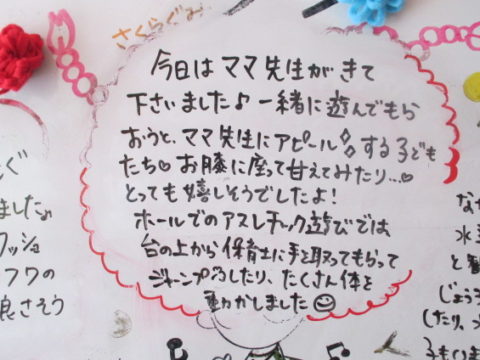 さくらぐみ
今日はママ先生がきて
下さいました♪一緒に遊んでもら
おうと、ママ先生にアピールする子ども
たち♡お膝に座って甘えてみたり…♡
とっても嬉しそうでしたよ!
ホールでのアスレチック遊びでは
台の上から保育士に手を取ってもらって
ジャンプをしたり、たくさん体を
動かしました☺
ぐ
ました♪
ッシュ
フワの
良さそう
なが
水
と観
じょうろ
したり、